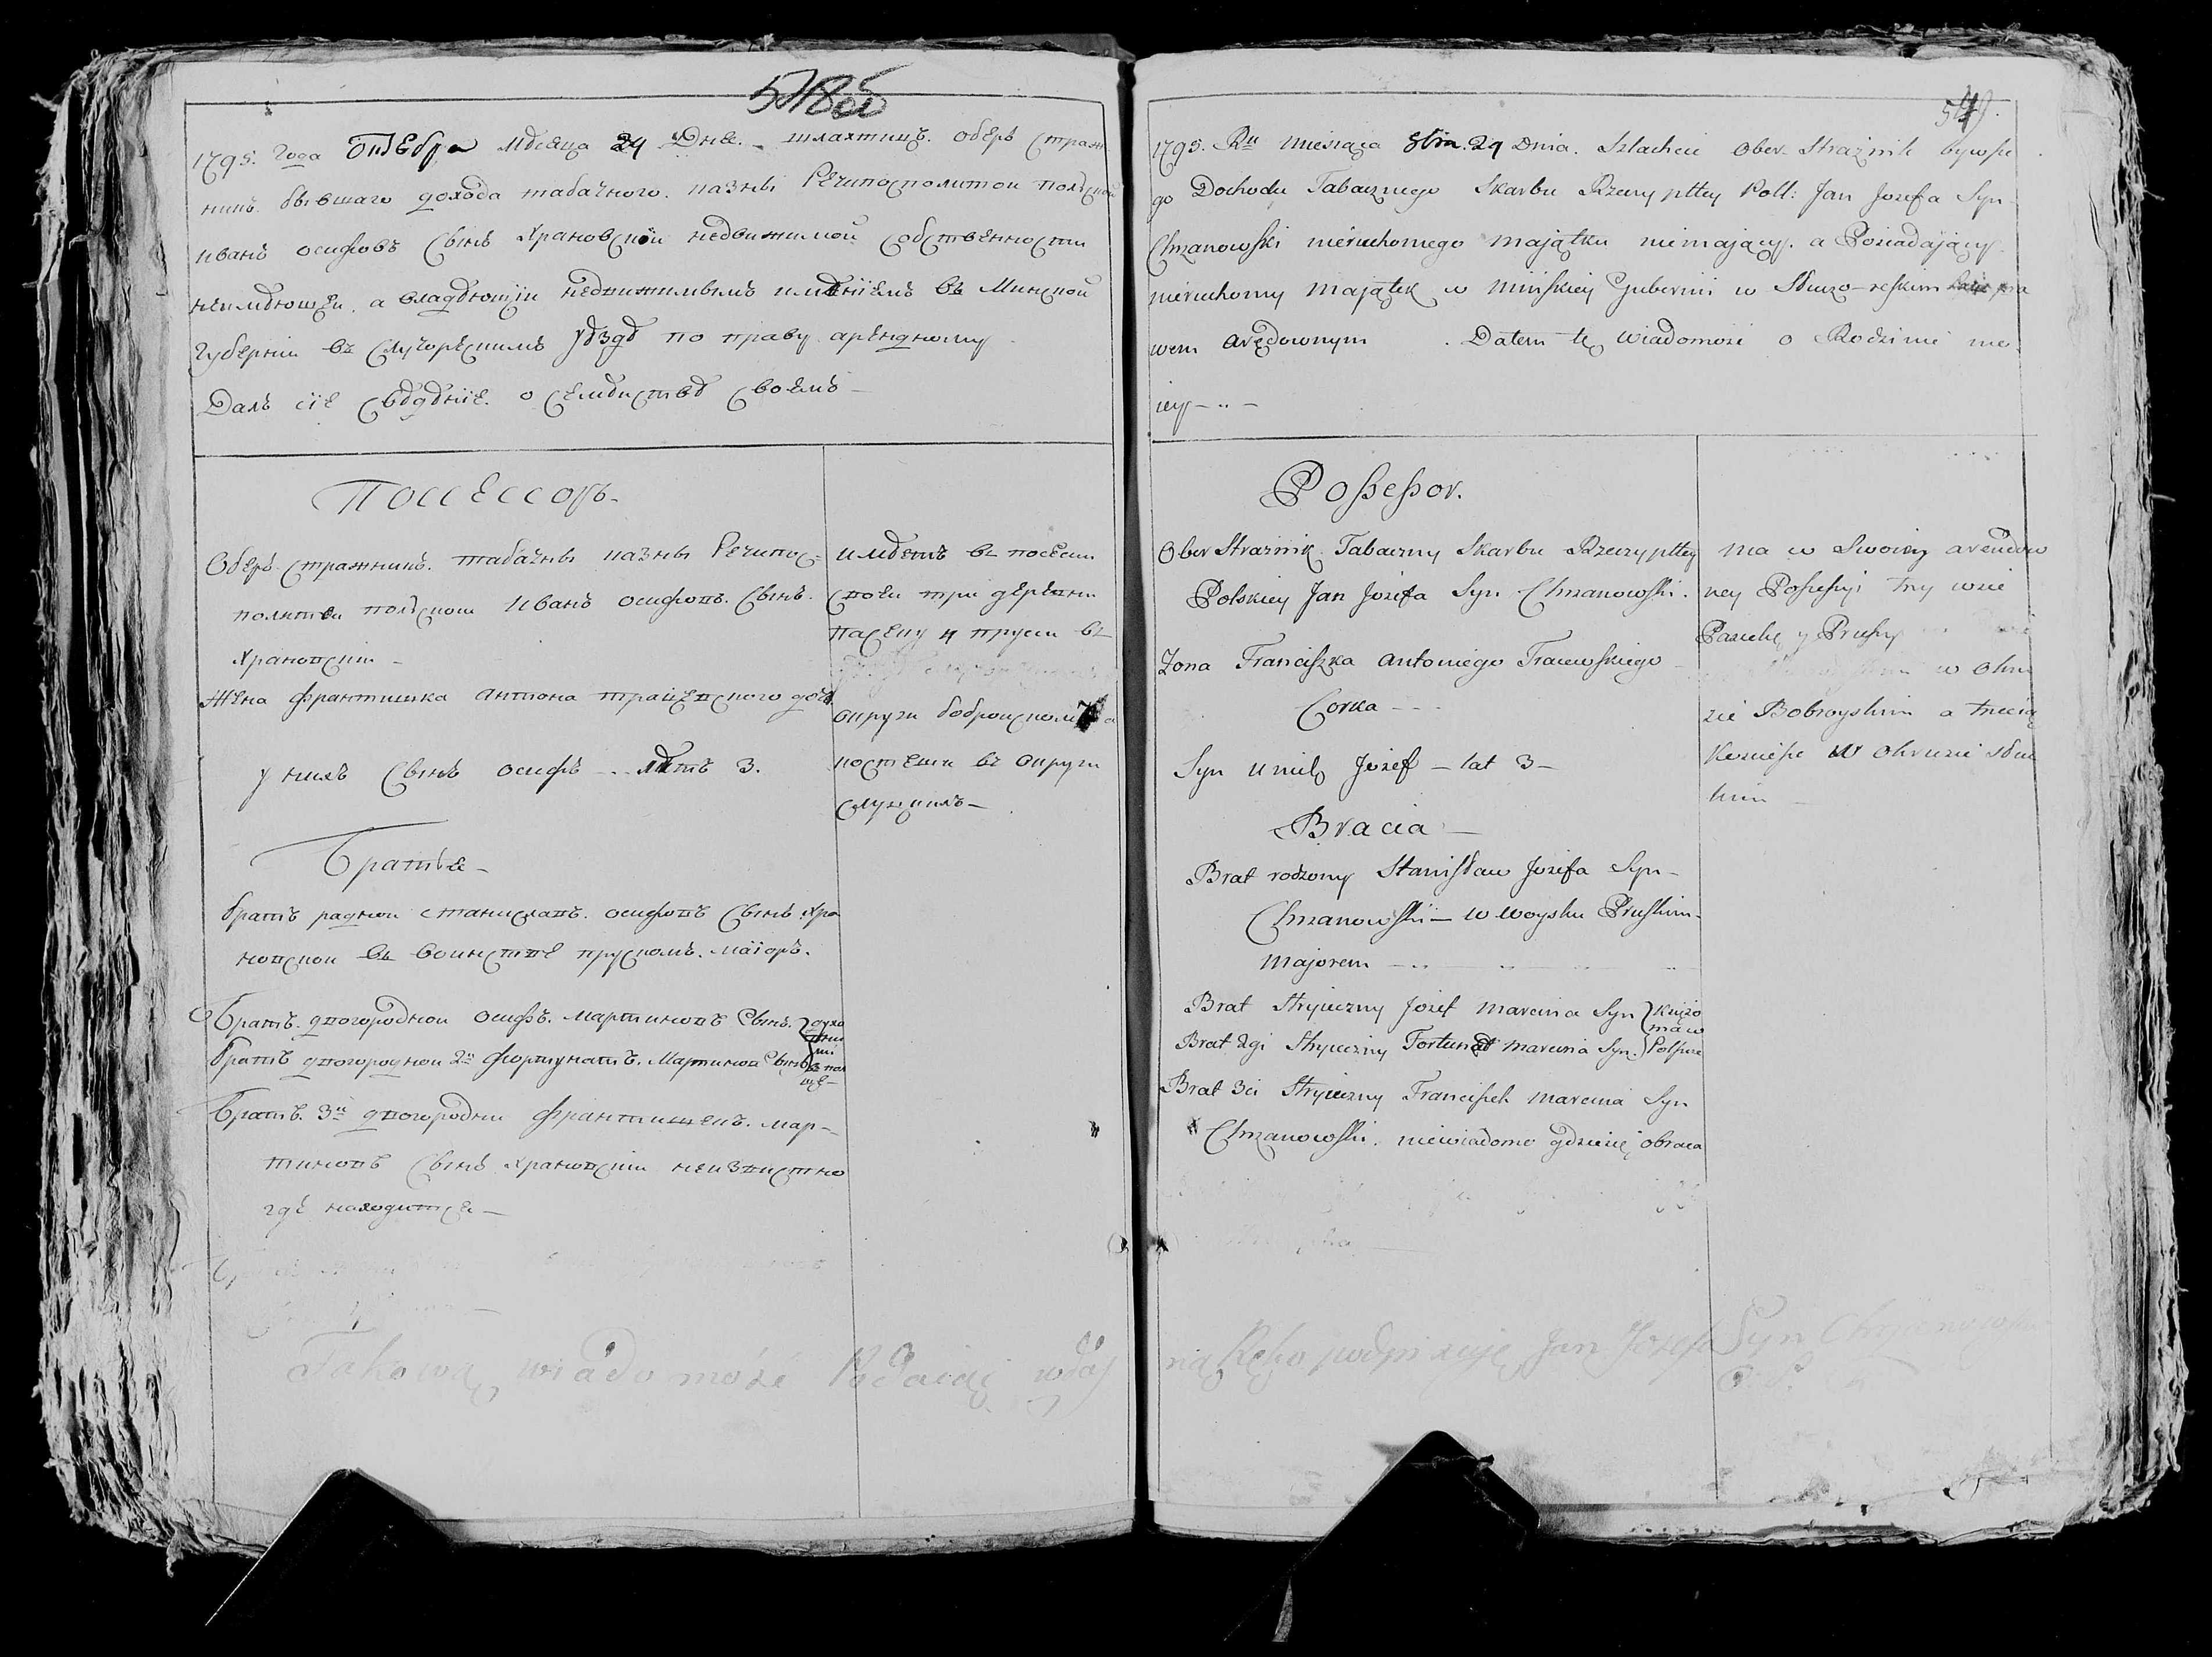 1795. Года Октебра мѣсяца 24 Дня. шляхтичъ. оберъ страж
никъ. бывшаго дохода табачного. казны Речипосполитои полской
иванъ осифовъ сынъ Храновскїи недвижимой собственности
неимѣющеи. а владѣющїи недвижимымъ имѣнїемъ въ Минской
Губернїи въ случорѣскимъ уѣздѣ по праву арендному
Далъ сїе свѣдѣнїе. о семѣиствѣ своемъ
Поссессоръ
Оберъ стражникъ. табачны казны Речипос=
политеи полской иванъ осифовъ. сынъ.
Храновскїи
Жена францишка антона трацевского дочь
у нихъ сынъ осифъ лѣтъ 3.
Братья
братъ раднои станиславъ. осифовъ сынъ. Хра
новскои въ воинствѣ прускомъ. маїоръ.
Братъ. двогороднои осифъ. мартиновъ сынъ.
братъ двогороднои 2й фортунатъ. Мартинов сынъ
Братъ. 3й двогородни францишекъ. мар-
тиновъ сынъ. Храновскїи неизвистно
гдѣ находится
имѣетъ въ посесїи
своеи трї деревни
пасеку и пруси въ
округи бобруиском а
костеши въ округи
слуцкимъ
Takową wiadomość Podaiąc wła
54
1795. Ru miesiąca 8bra. 24 Dnia. Szlachcic Ober. Strażnik bywsze
go Dochodu Tabacznego Skarbu Rzeczypltey Poll: Jan Jozefa Syn
Chrzanowski nieruchomego majątku niemaiący. a Posiadaiący
nieruchomy majątek w Mińskiey Gubernii w Słuczo-reskim pra
wem arędownym. Datem tę wiadomość o Rodzinie mo
iey
Possessor.
Ober Strażnik Tabaczny Skarbu Rzeczypltey
Polskiey Jan Jozefa Syn Chrzanowski.
Zona Franciszka Antoniego Tracewskiego
Corka
Syn u nich Jozef — lat 3 —
Bracia
Brat rodzony Stanisław Jozefa Syn
Chrzanowski — w woysku Pruskim
majorem
Brat Stryieczny Jozef Marcina Syn } Księżo
Brat 2gi Stryieczny Fortunat Marcina Syn. } ma w Polszcze
Brat 3ci Stryieczny Franciszek Marcina Syn
Chrzanowski. niewiadomo gdzie się obraca
ma w Swoiey arendow
ney Possessyi trzy wsie
Pasiekę y Prusy
w Okru
zie Bobroyskim a trzecią
w Okruzie słuc
kim
ną Ręką podpisuię Jan Jozefa Syn Chrzanowski